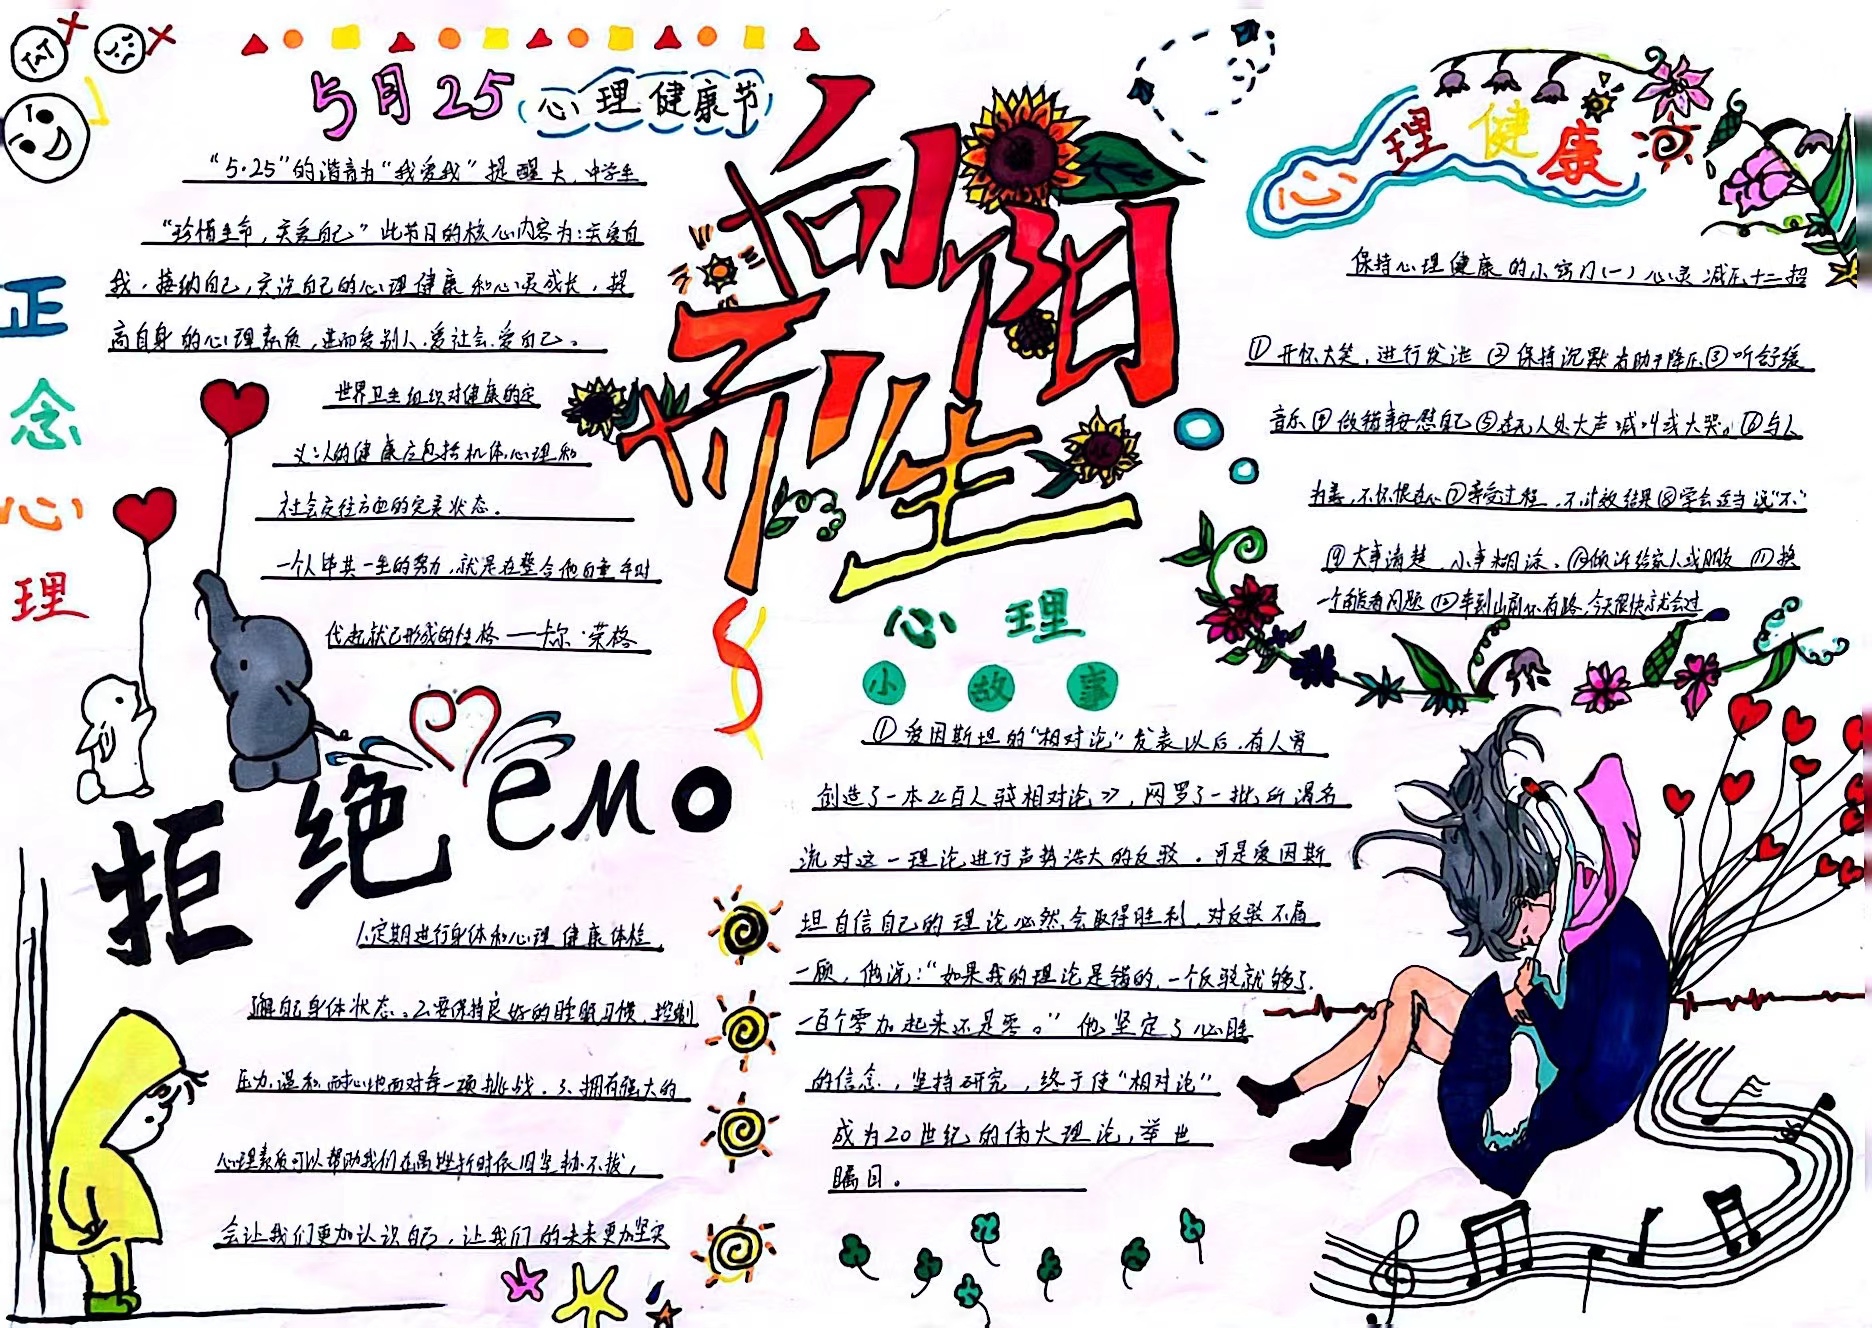 5月25心理健康节
“5·25”的谐音为“我爱我”提醒大、中学生
“珍惜生命，关爱自己”此节日的核心内容为：关爱自
我，接纳自己，关注自己的心理健康和心灵成长，提
高自身的心理素质，进而爱别人.爱社会.爱自己。
正念心理
世界卫生组织对健康的定
义：人的健康应包括机体.心理和
社会交往方面的完美状态。
一个人毕其一生的努力，就是在整合他自童年时
代起就已形成的性格——卡尔·荣格
拒绝emo
1.定期进行身体和心理健康体检
了解自己身体状态。2.要保持良好的睡眠习惯，控制
压力，温和耐心地面对每一项挑战。3、拥有强大的
心理素质可以帮助我们在遇挫折时依旧坚韧不拔，
会让我们更加认识自己，让我们的未来更加坚实
向阳而生
心理
小故事
①爱因斯坦的“相对论”发表以后，有人曾
创造了一本《百人驳相对论》，网罗了一批所谓名
流对这一理论进行声势浩大的反驳。可是爱因斯
坦自信自己的理论必然会取得胜利，对反驳不屑
一顾，他说：“如果我的理论是错的，一个反驳就够了，
一百个零加起来还是零。”他坚定了心胜
的信念，坚持研究，终于使“相对论”
成为20世纪的伟大理论，举世
瞩目。
心理健康
保持心理健康的小窍门(一)心灵减压十二招
①开怀大笑，进行发泄②保持沉默有助于降压③听舒缓
音乐④做错事安慰自己⑤在无人处大声喊叫或大哭。⑥与人
为善，不怀恨在心⑦享受过程，不计较结果⑧学会适当说“不”
⑨大事清楚，小事糊涂。⑩倾诉给家人或朋友⑪换
一个角度看问题⑫车到山前必有路，今天很快就会过